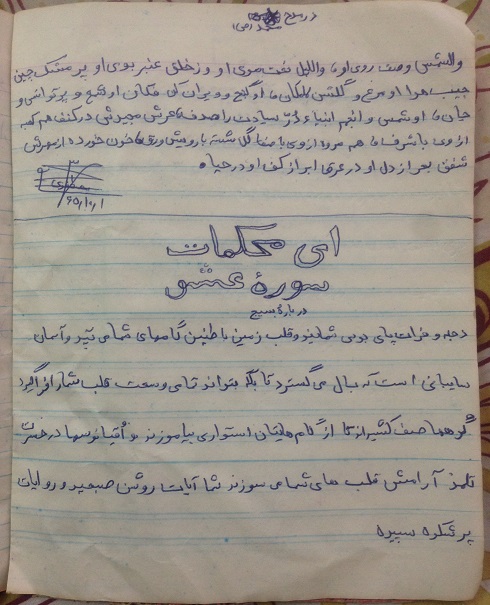 در مدح
والشمس وصف روی او والليل نعت موی او وز خلق عنبر بوی او پر مشک چین
جیب هوا او مرغ و گلشن لامکان ما او گنج و ویران کن فکان او تیغ و پرتو انس و
جان ما او شمس و انجم انبیاء درّ سیادت را صدف ما عرش مجیدش در کنف هم کعبه
از وی با شرف ما هم مروه از وی با صفا گلشته با رویش ورق ما خون خورده از مهرش
شفق بحر از دل او در عرق ابر از کف او در حیا
۶۵/۱۰/۱
ای محکمات
سورهٔ عشق
دربارهٔ بسیج
دجله و فرات پای بوس شمایند و قلب زمین با طنین گامهای شما می تپد و آسمان
سایبانی است که بال می گسترد تا بلکه بتواند تمامی وسعت قلب شما را فرا گیرد
کوهها صف کشیده‌اند تا از گام هایتان استواری بیاموزند و اقیانوسها در حسرت
تلمذ آرامش قلب های شما می سوزند شما آیات روشن صبحید و روایات
پر شکوه سپیده